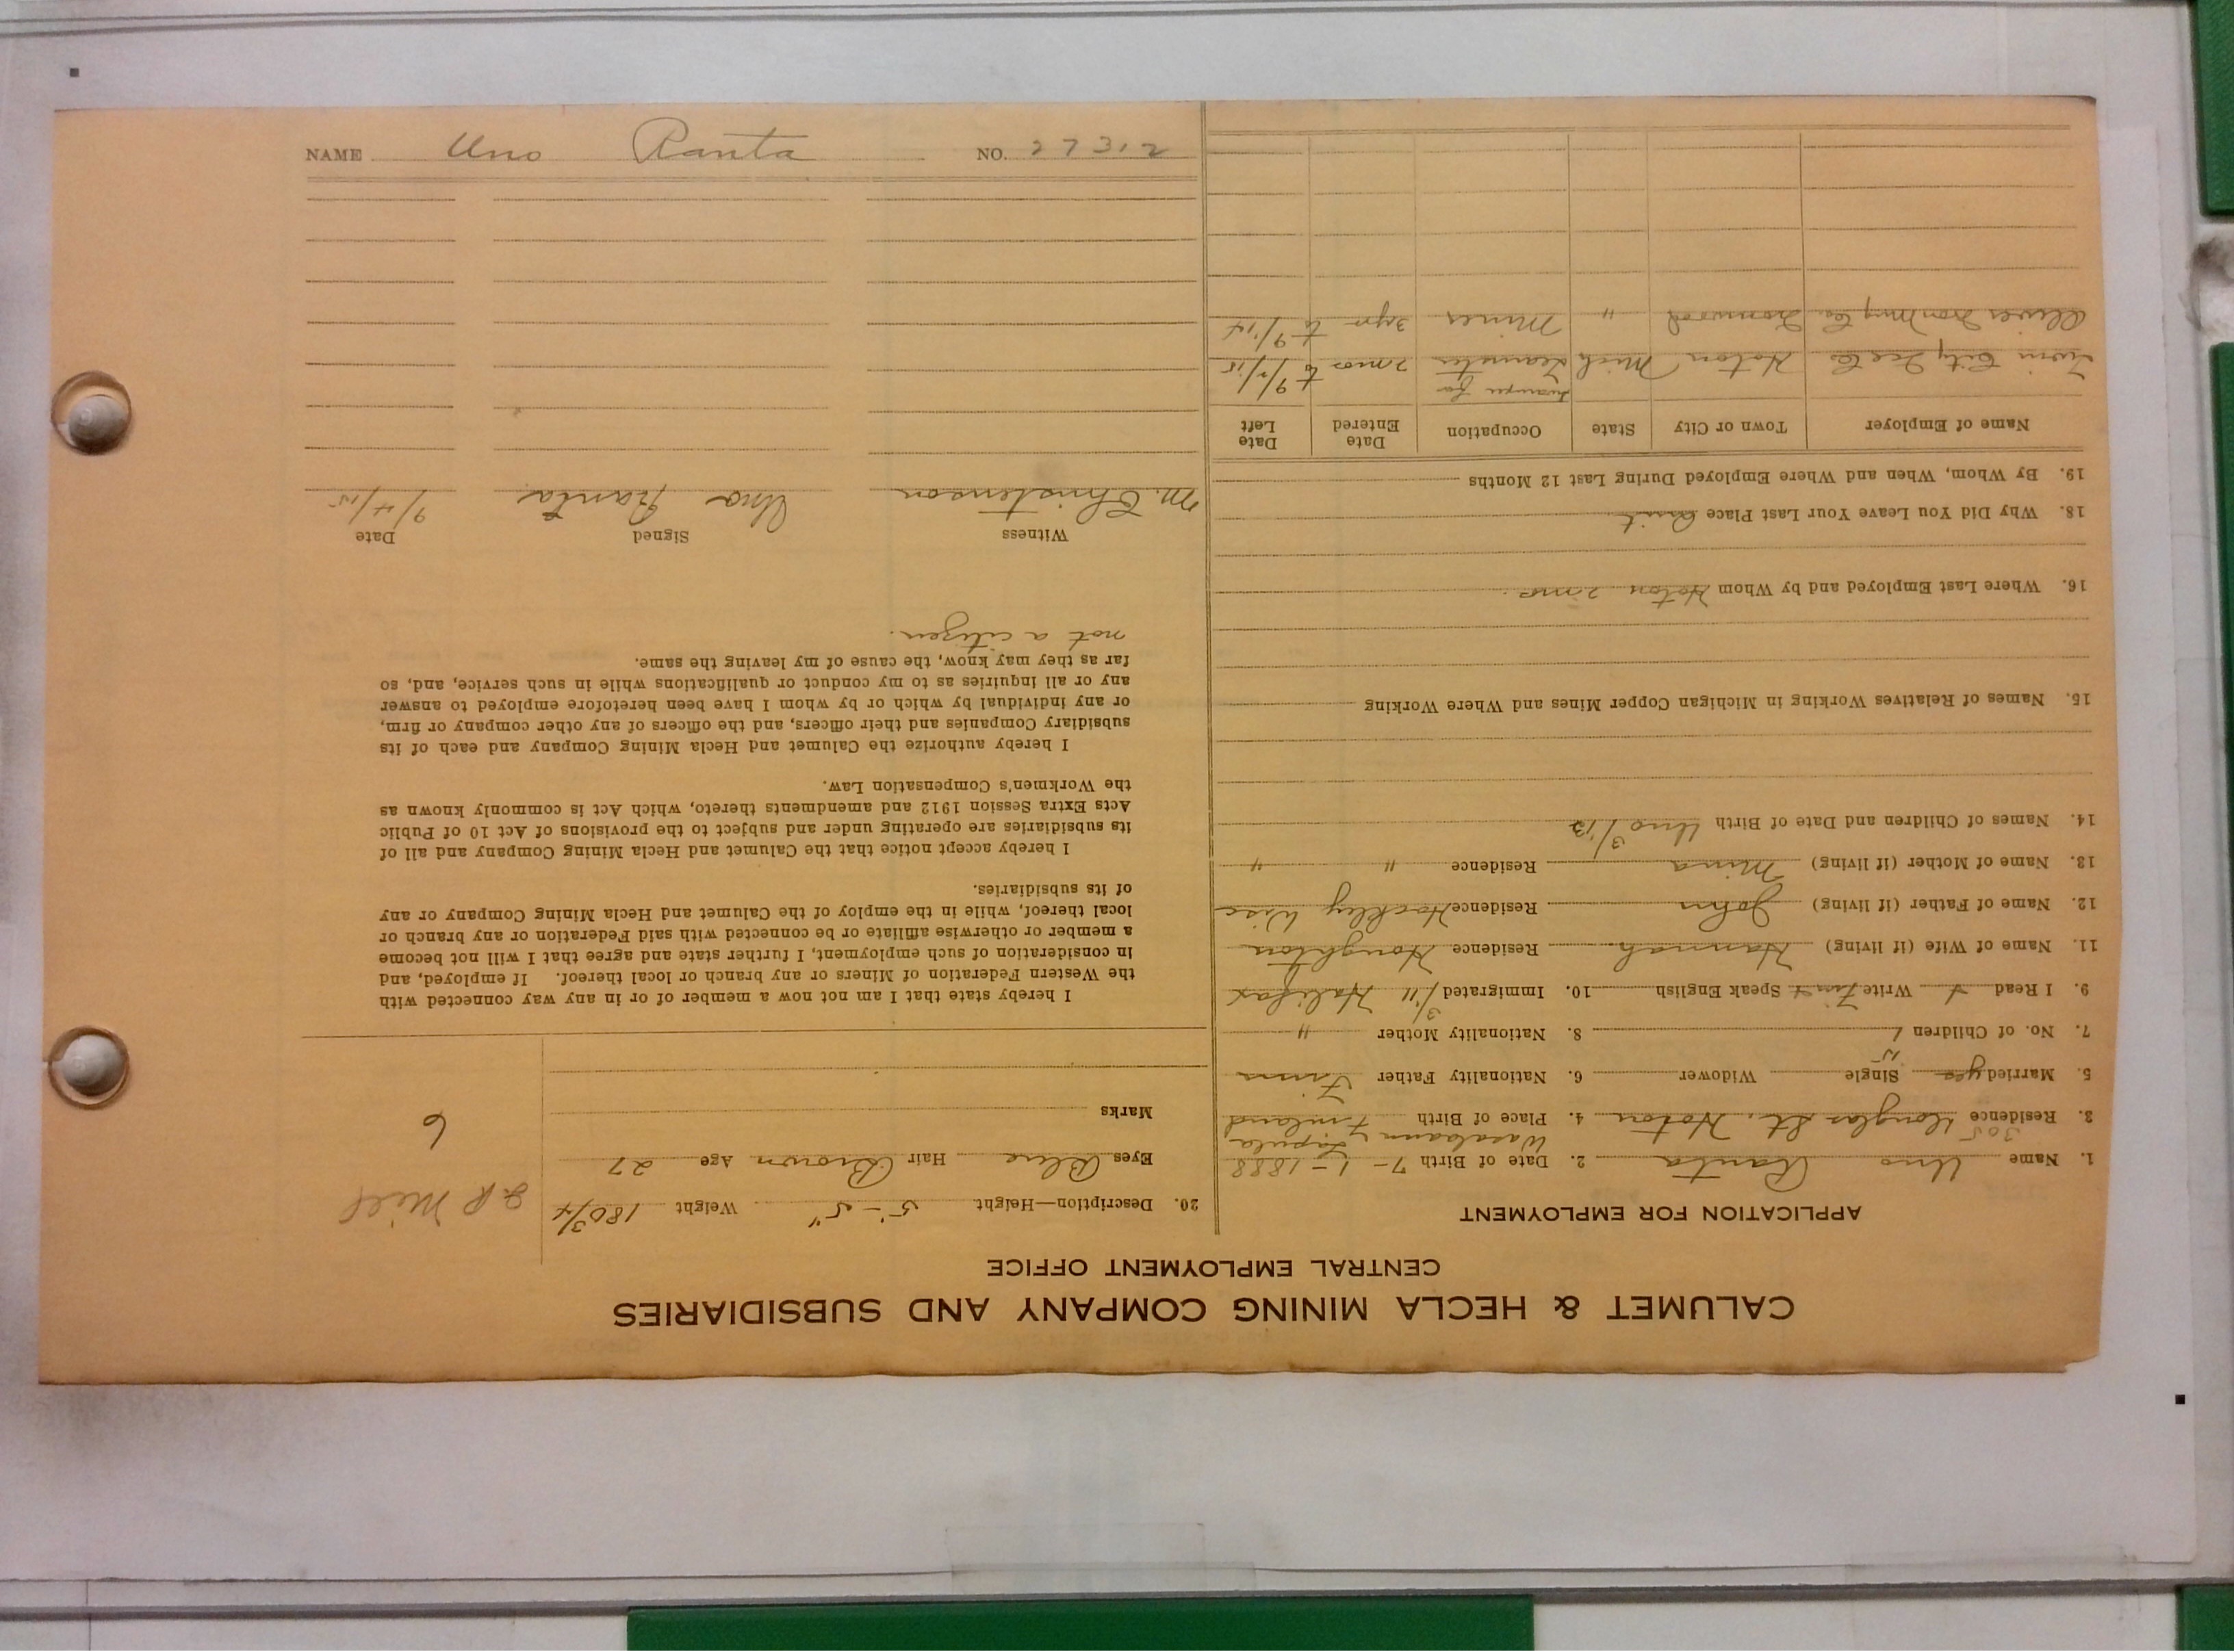 CALUMET & HECLA MINING COMPANY AND SUBSIDIARIES
CENTRAL EMPLOYMENT OFFICE
APPLICATION FOR EMPLOYMENT
1. Name Uno Ranta 2. Date of Birth 7-1-1888
305 Lapula
3. Residence Douglas St. Hoton 4. Place of Birth Finland
5. Married yes Single Widower 6. Nationality Father Finn
7. No. of Children 1 8. Nationality Mother "
9. I Read Write Finn Speak English 10. Immigrated 3/'11 Halifax
11. Name of Wife (if living) Hannah Residence Houghton
12. Name of Father (if living) John Residence Hockley Wisc
13. Name of Mother (if living) Mina Residence " "
14. Names of Children and Date of Birth Uno 3/13
15. Names of Relatives Working in Michigan Copper Mines and Where Working
16. Where Last Employed and by Whom Hoton 2 mo.
18. Why Did You Leave Your Last Place Quit
19. By Whom, When and Where Employed During Last 12 Months
Name of Employer Town or City State Occupation Date Entered Date Left
Twin City Ice Co Hoton Mich Teamster 2 mos to 9/1/15
Oliver Iron Mng Co. Ironwood " Miner 3 yr to 9/14
20. Description—Height 5'-5" Weight 180 3/4
Eyes Blue Hair Brown Age 27
Marks
Mill
6
I hereby state that I am not now a member of or in any way connected with
the Western Federation of Miners or any branch or local thereof. If employed, and
in consideration of such employment, I further state and agree that I will not become
a member or otherwise affiliate or be connected with said Federation or any branch or
local thereof, while in the employ of the Calumet and Hecla Mining Company or any
of its subsidiaries.
I hereby accept notice that the Calumet and Hecla Mining Company and all of
its subsidiaries are operating under and subject to the provisions of Act 10 of Public
Acts Extra Session 1912 and amendments thereto, which Act is commonly known as
the Workmen's Compensation Law.
I hereby authorize the Calumet and Hecla Mining Company and each of its
subsidiary Companies and their officers, and the officers of any other company or firm,
or any individual by which or by whom I have been heretofore employed to answer
any or all inquiries as to my conduct or qualifications while in such service, and, so
far as they may know, the cause of my leaving the same.
not a citizen.
Witness Signed Date
M. Christenson Uno Ranta 9/4/15
NAME Uno Ranta NO. 27312